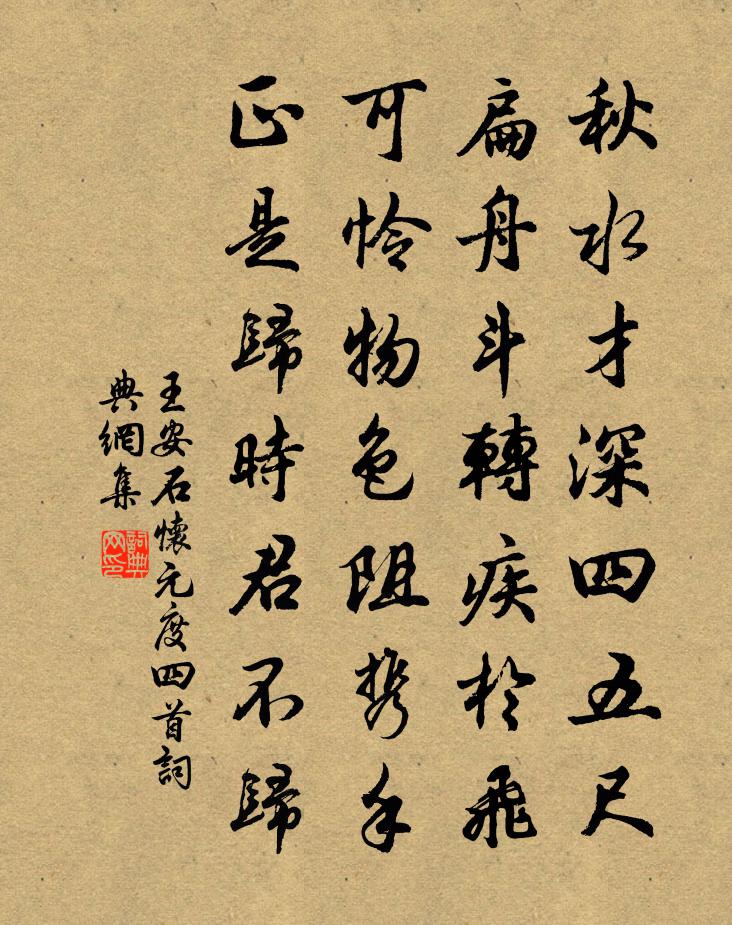 秋水才深四五尺
扁舟斗轉疾於飛
可怜物色阻携手
正是歸時君不歸
王安石懷元度四首詞
典網集
詞典網印